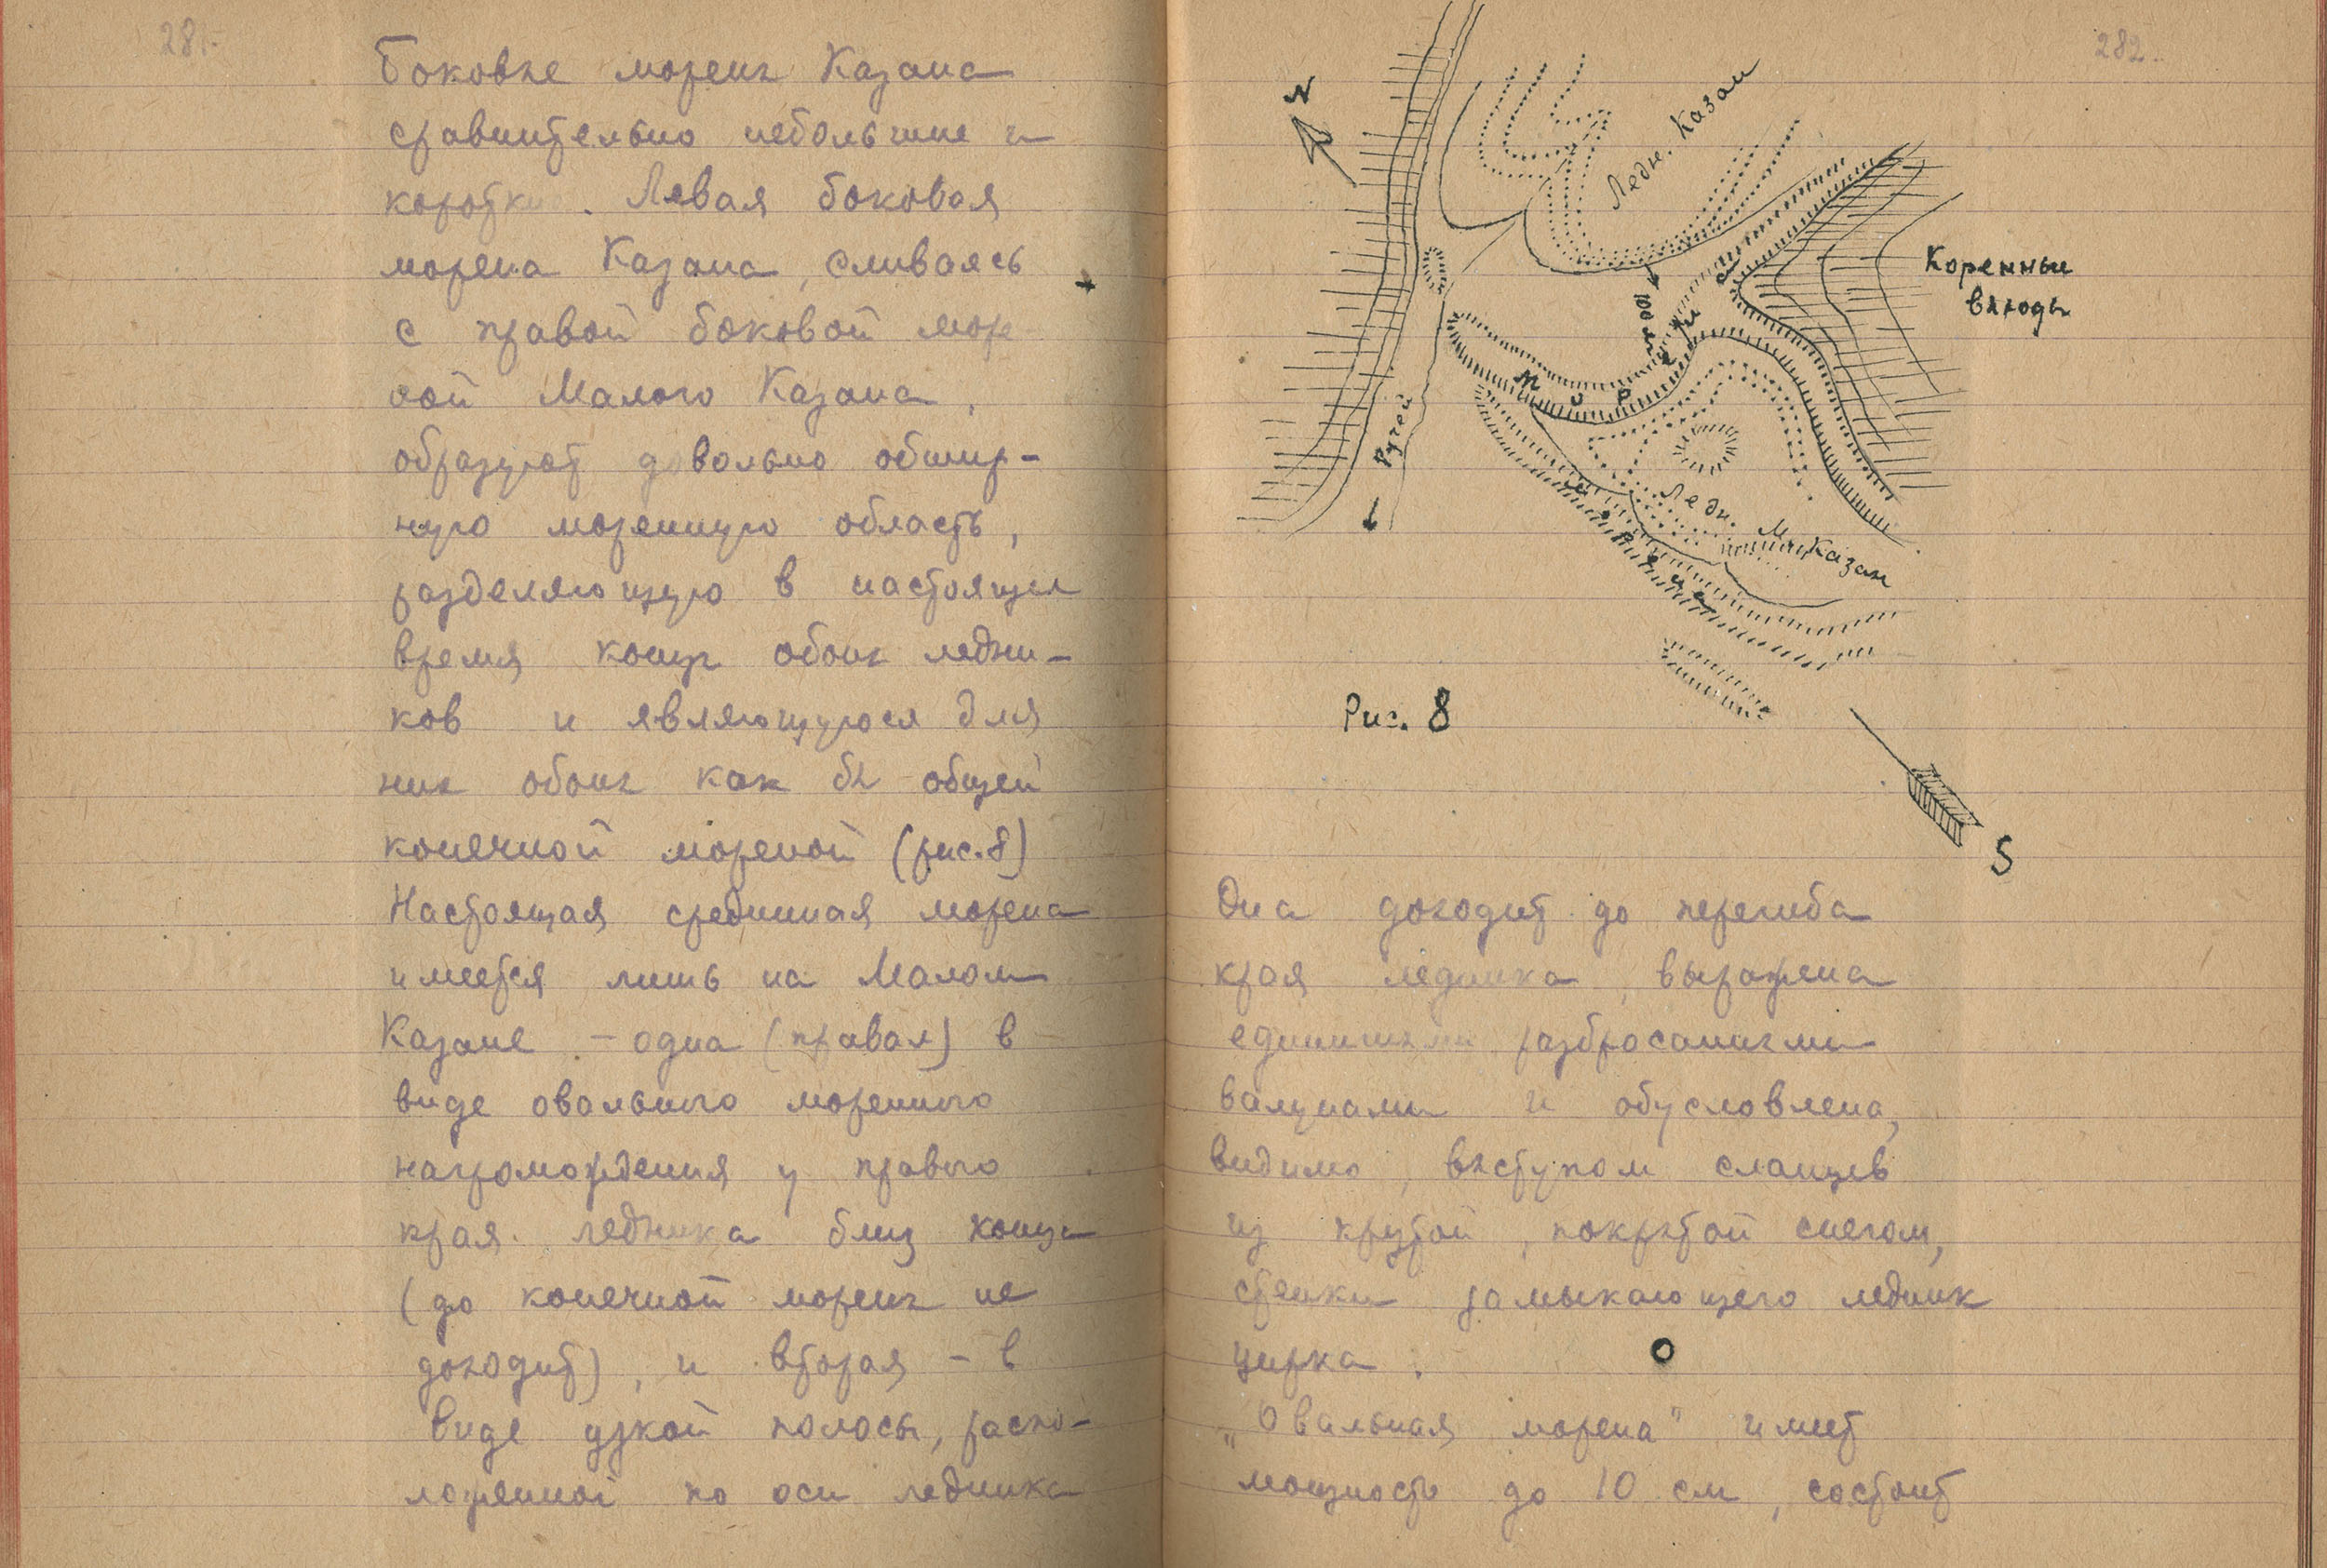 281
Боковые морены Казана
сравнительно небольшие и
коротки. Левая боковая
морена Казана, сливаясь
с правой боковой море
ной Малого Казана,
образуют довольно обшир-
ную моренную область,
разделяющую в настоящее
время концы обоих ледни-
ков и являющуюся для
них обоих как бы общей
конечной мореной (рис. 8)
Настоящая срединная морена
имеется лишь на Малом
Казане – одна (правая) в
виде овального моренного
нагромождения у правого
края ледника близ конца
(до конечной морены не
доходит), и вторая – в
виде узкой полосы, распо-
ложенной по оси ледника
282
N
Ледн. Казан
Коренные
выходы
100 м
морена
Ручей
Ледн. М. Казан
морена
Рис. 8
S
Она доходит до перегиба
края ледника, выражена
единичными разбросанными
валунами и обусловлена,
видимо, выступом сланцев
из крутой, покрытой снегом,
стенки замыкающего ледник
цирка.
„Овальная морена" имеет
мощность до 10 см, состоит